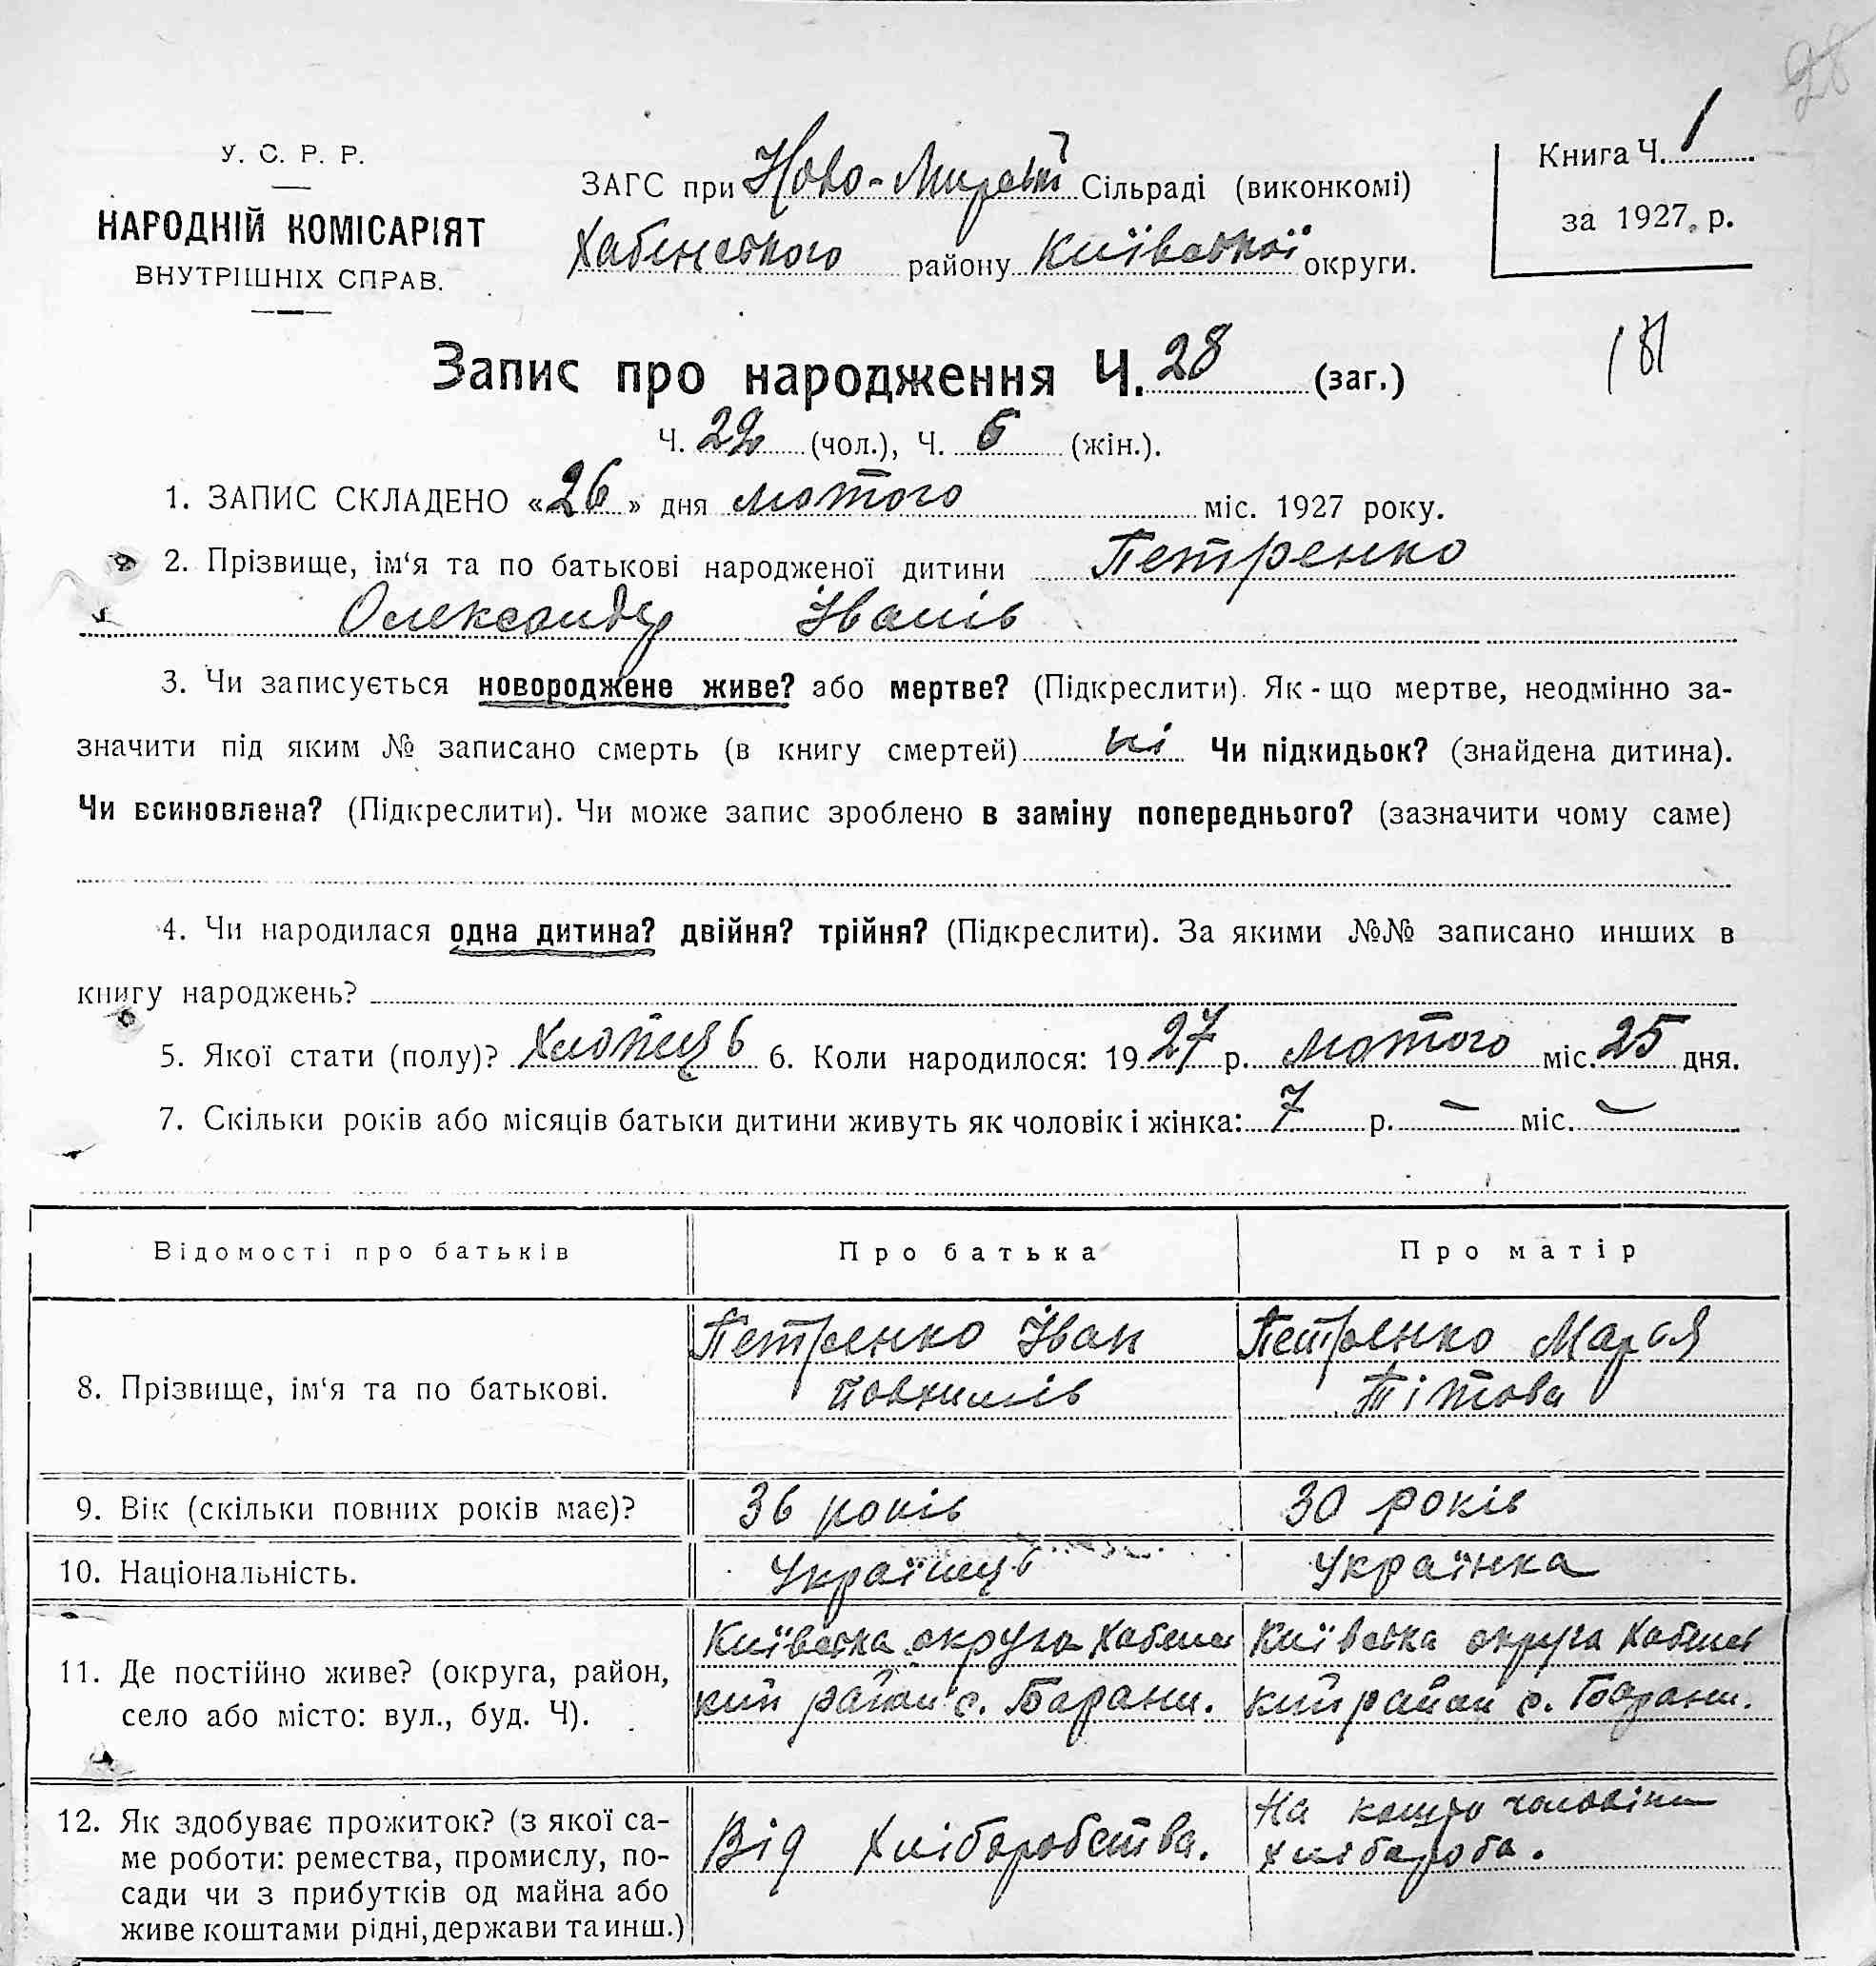 28
У. С. Р. Р.
НАРОДНІЙ КОМІСАРІЯТ
ВНУТРІШНІХ СПРАВ.
ЗАГС при Ново-Мирській Сільраді (виконкомі)
Хабенського району Київської округи.
Книга Ч. 1
за 1927 р.
Запис про народження Ч. 28 (заг.)
Ч. 22 (чол.), Ч. 6 (жін.).
1. ЗАПИС СКЛАДЕНО «26» дня лютого міс. 1927 року.
2. Прізвище, ім'я та по батькові народженої дитини Петренко
Олександр Іванів
3. Чи записується новороджене живе? або мертве? (Підкреслити). Як-що мертве, неодмінно за-
значити під яким № записано смерть (в книгу смертей) ні Чи підкидьок? (знайдена дитина).
Чи всиновлена? (Підкреслити). Чи може запис зроблено в заміну попереднього? (зазначити чому саме)
4. Чи народилася одна дитина? двійня? трійня? (Підкреслити). За якими №№ записано инших в
книгу народжень?
5. Якої стати (полу)? Хлопець 6. Коли народилося: 1927 р. лютого міс. 25 дня.
7. Скільки років або місяців батьки дитини живуть як чоловік і жінка: 7 р. – міс. –
Відомості про батьків
Про батька
Про матір
8. Прізвище, ім'я та по батькові.
Петренко Іван
Петренко Марья
Тітова
9. Вік (скільки повних років має)?
36 років
30 років
10. Національність.
Українець
Українка
11. Де постійно живе? (округа, район,
село або місто: вул., буд. Ч).
Київська округа Хабенс
кий район с. Барани.
Київська округа Хабенс
кий район с. Барани.
12. Як здобуває прожиток? (з якої са-
ме роботи: ремества, промислу, по-
сади чи з прибутків од майна або
живе коштами рідні, держави та инш.)
Від Хліборобства.
На кошти чоловіка
Хлібороба.